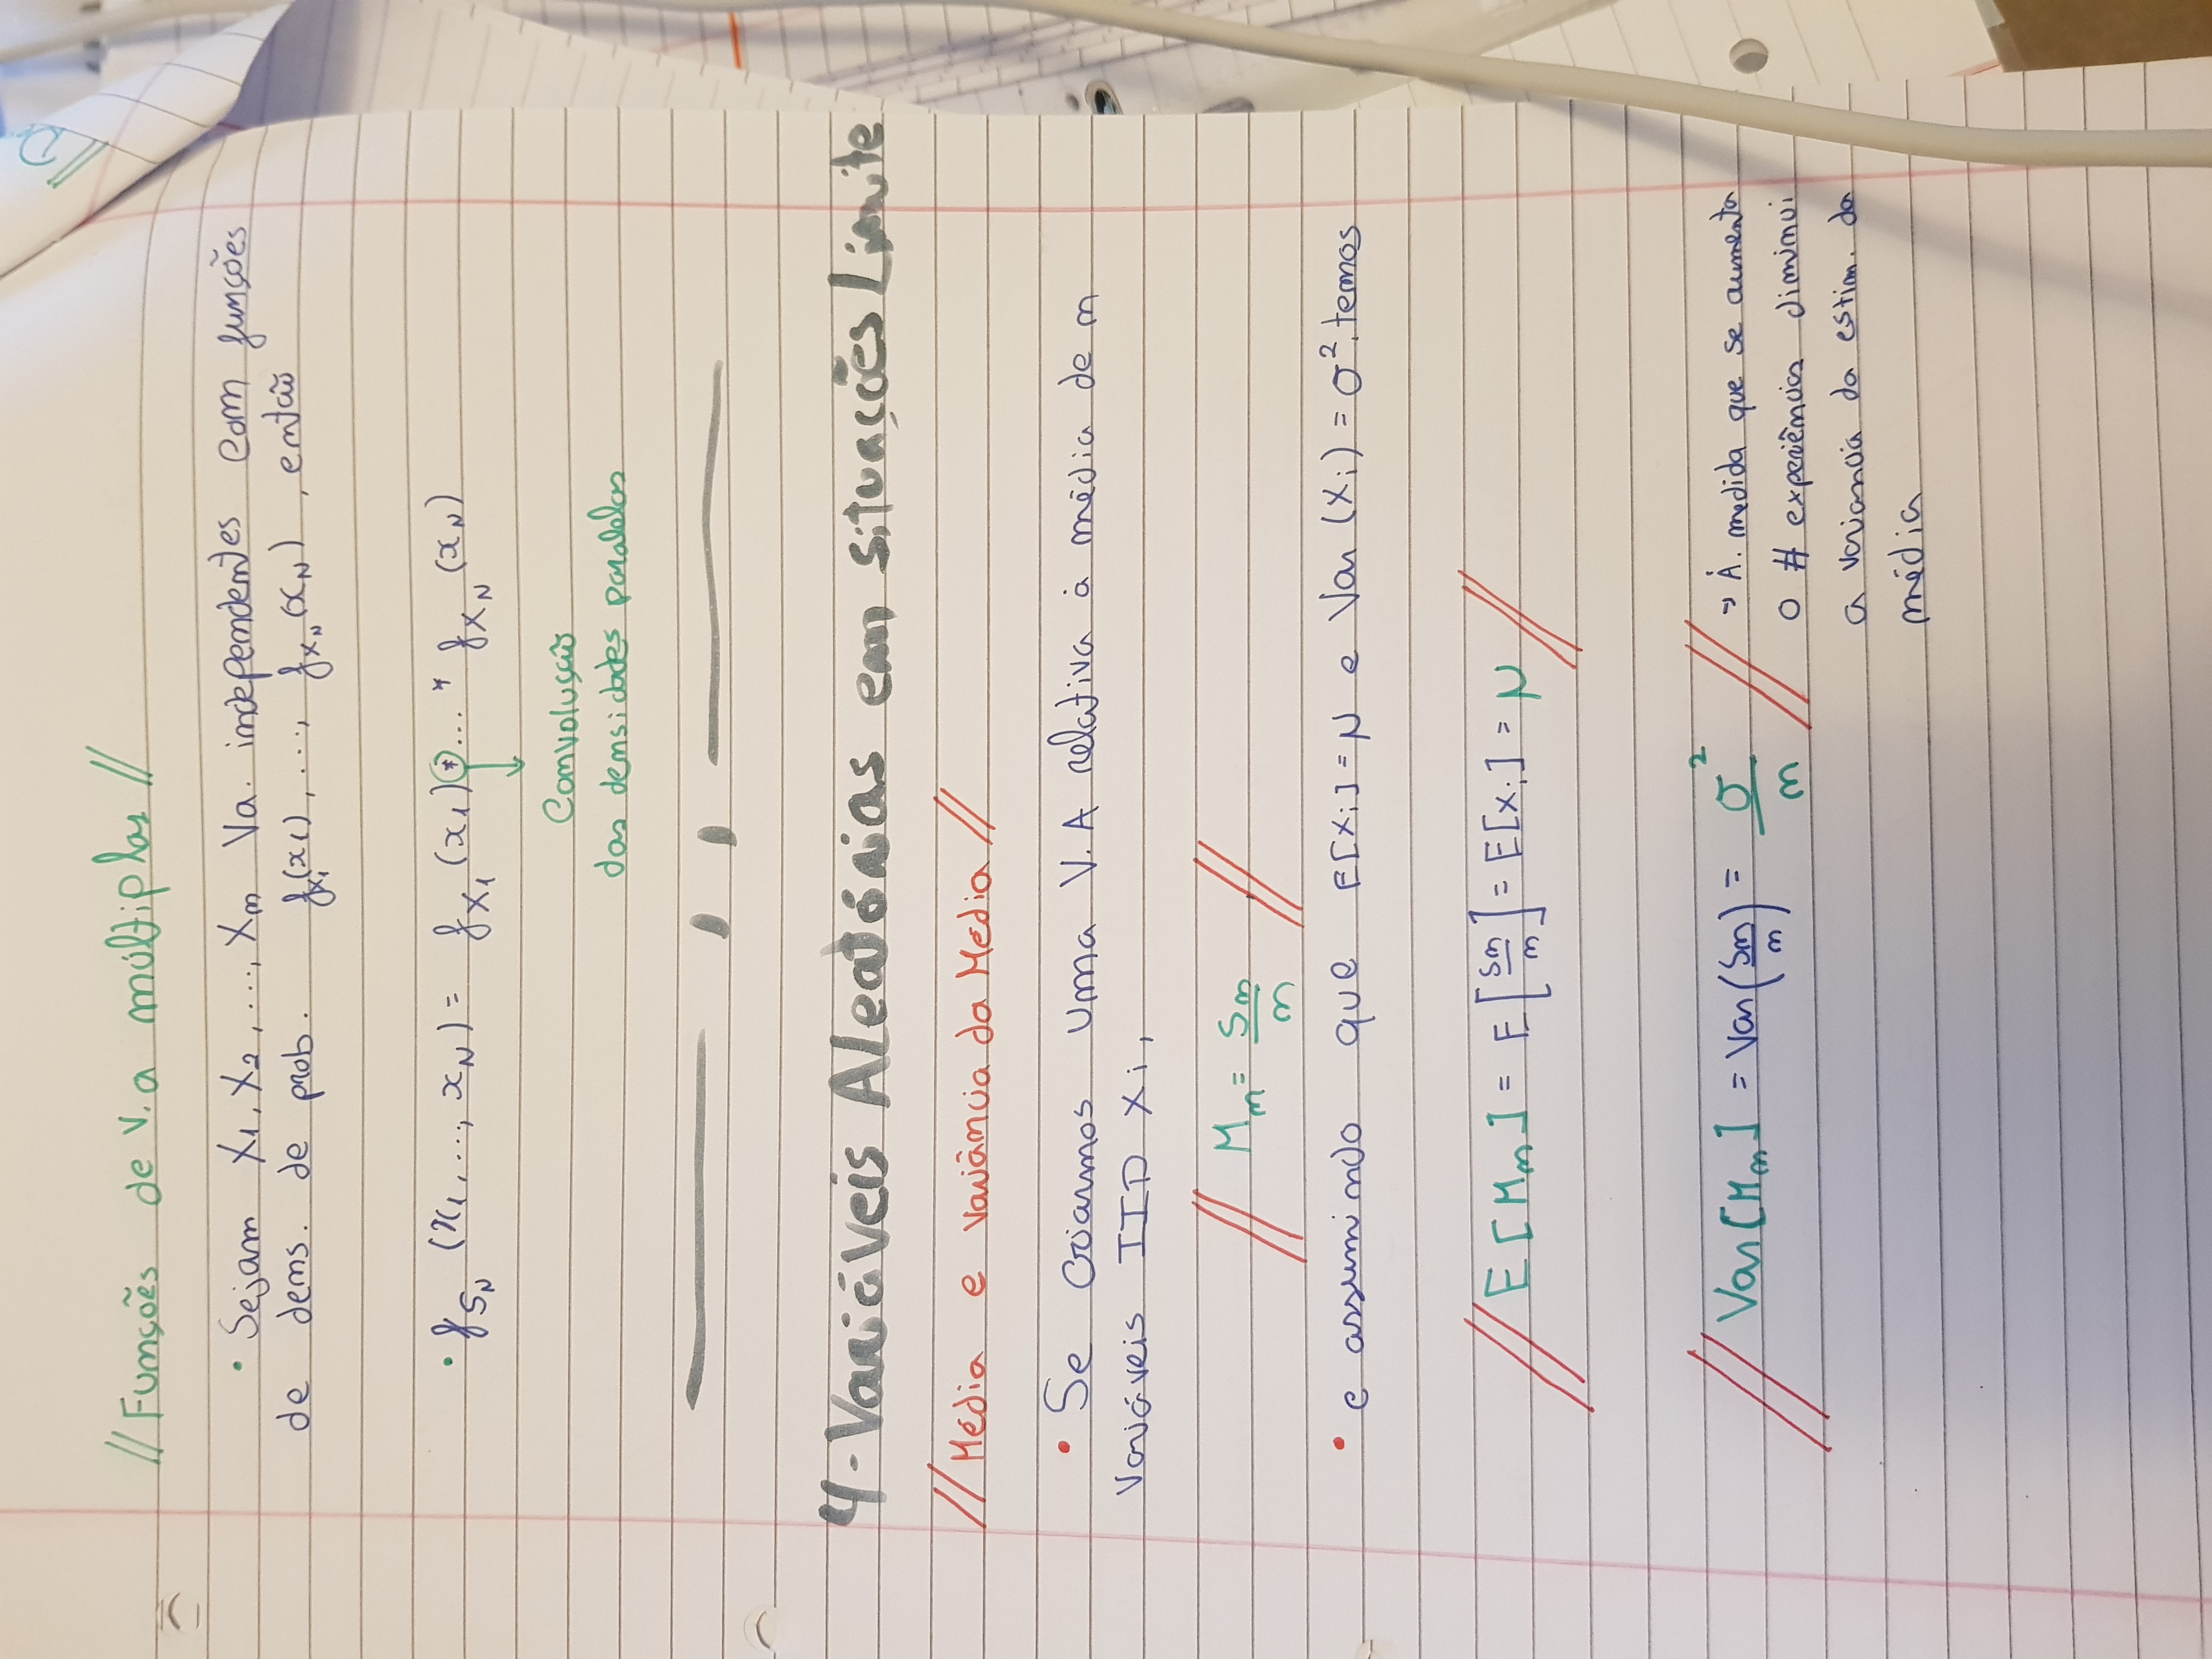 // Funções de V.a múltiplas //
• Sejam X1, X2, ..., Xn Va. independentes com funções
de dens. de prob. fX1(x1), ..., fXN(xN), então
• fSN (x1, ..., xN) = fX1(x1) * ... * fXN(xN)
Convolução
das densidades paralelas
4-Variáveis Aleatórias em situações Limite
// Média e variância da Média //
• Se criarmos uma V.A relativa à média de n
Variáveis IID Xi,
// Mn = Sn/n //
• e assumindo que E[Xi] = μ e Var (Xi) = σ², temos
// E[Mn] = E[Sn/n] = E[Xi] = μ //
// Var[Mn] = Var(Sn/n) = σ²/n // → À. medida que se aumenta
o # experiências diminui
a variancia da estim. da
média